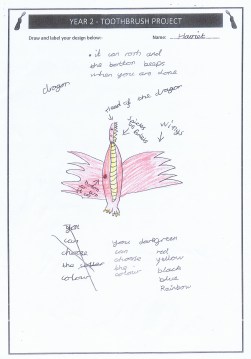 YEAR 2 - TOOTHBRUSH PROJECT
Draw and label your design below:
Name: Harriet
• it can and
the bottom beeps
when you are done
dragon
Head of the dragon
spices
wings
you
can
choose
the
colour
you
can
choose
the
colour
dark green
red
yellow
black
blue
Rainbow